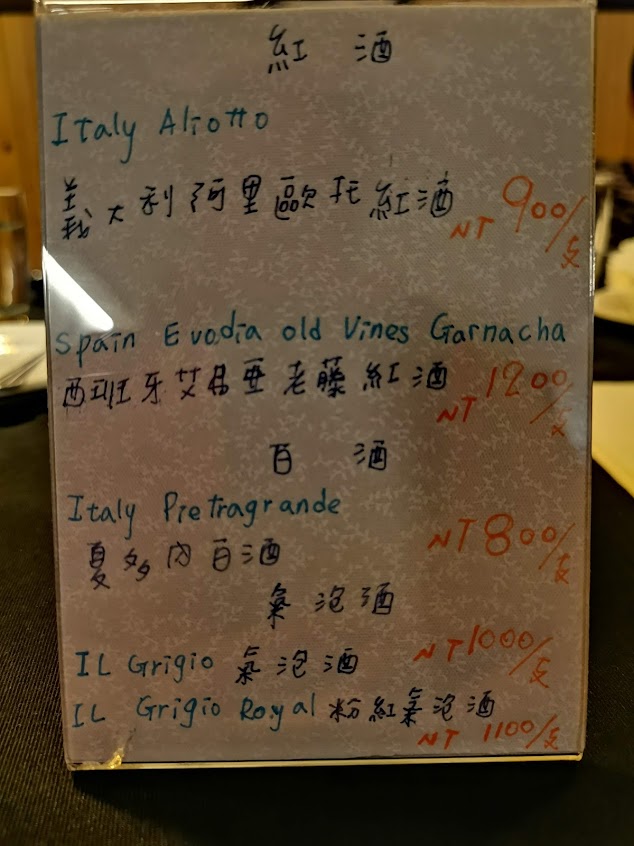 紅 酒
Italy Aliotto
義大利阿里歐托紅酒 NT 900/支
Spain Evodia old Vines Garnacha
西班牙艾昌亜老藤紅酒 NT 1200/支
百 酒
Italy Pietragrande
夏多內百酒 NT 800/支
氣泡酒
IL Grigio 氣泡酒 NT 1000/支
IL Grigio Royal 粉紅氣泡酒
NT 1100/支